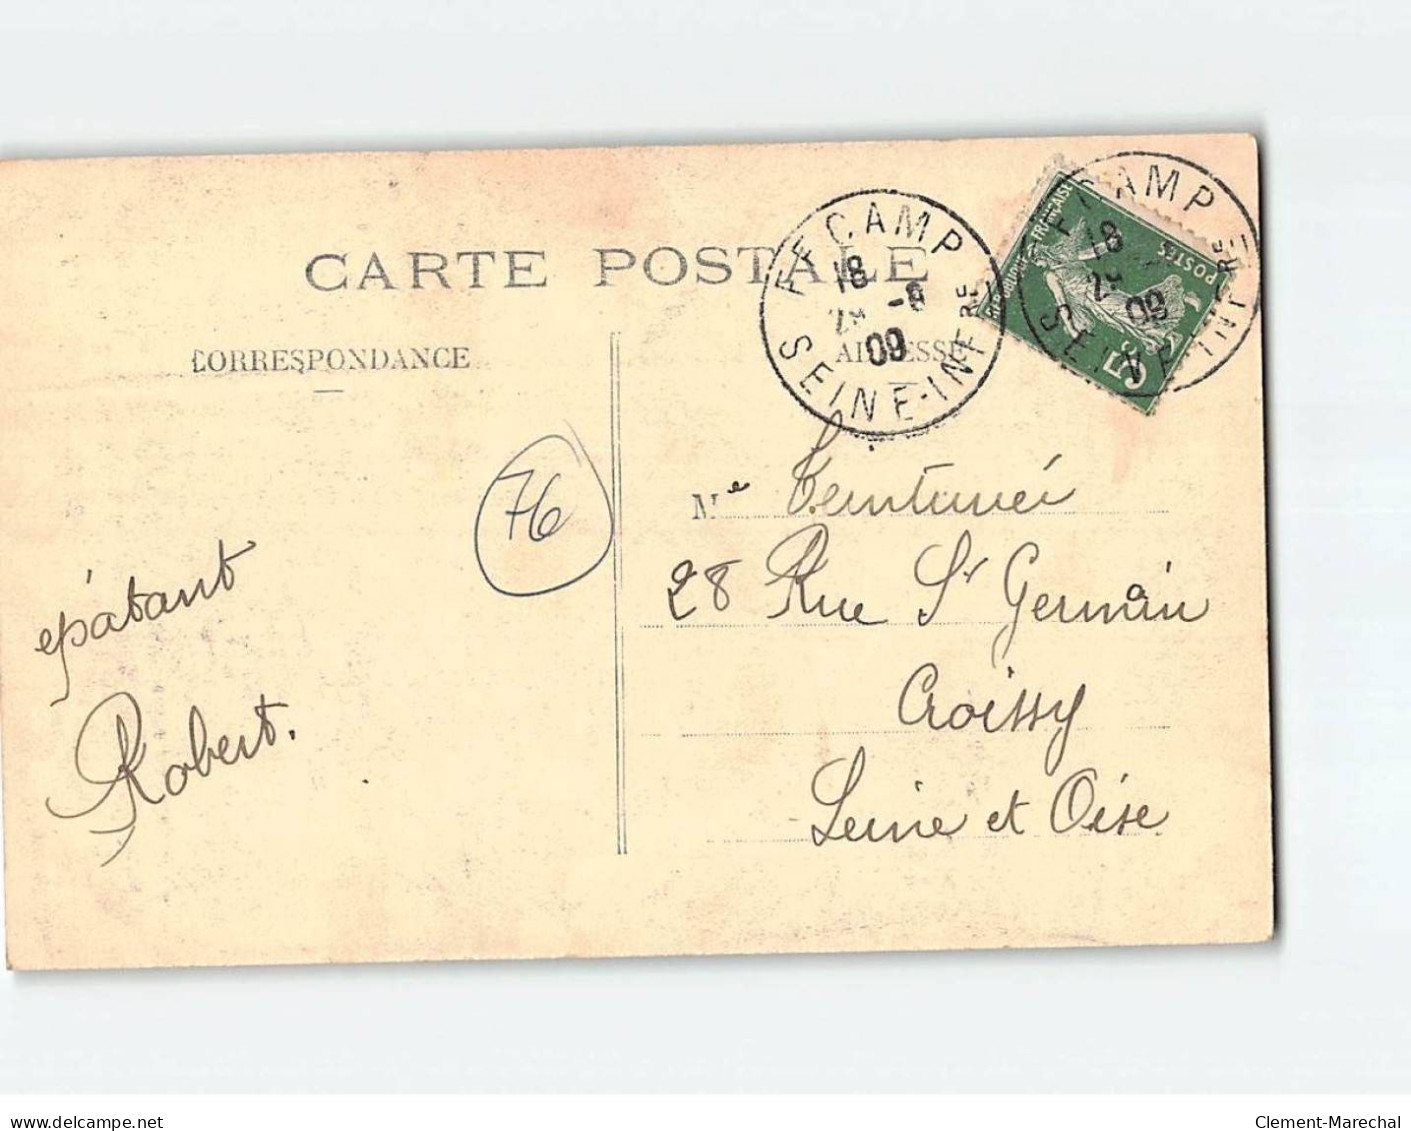 CARTE POSTALE
CORRESPONDANCE
ADRESSE
FECAMP
18
-8
09
SEINE-INFRE
FECAMP
18
09
SEINE-INFRE
FRANÇAISE
POSTES
5
76
épatant
Robert.
Me
28 Rue St Germain
Croissy
Seine et Oise
delcampe.net
Clement-Marechal